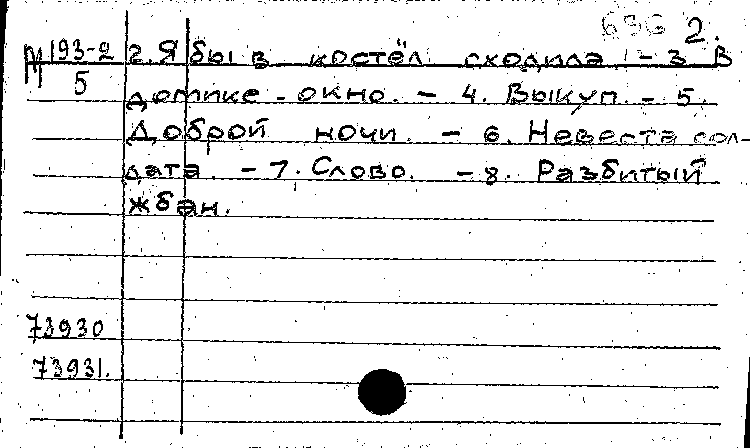 636 2.
М 193-2 2. Я бы в костёл сходила - 3 В
5 домике - окно. - 4. Выкуп. - 5.
Доброй ночи. - 6. Невеста сол-
дата. - 7. Слово. - 8. Разбитый
жбан.
73930
73931.